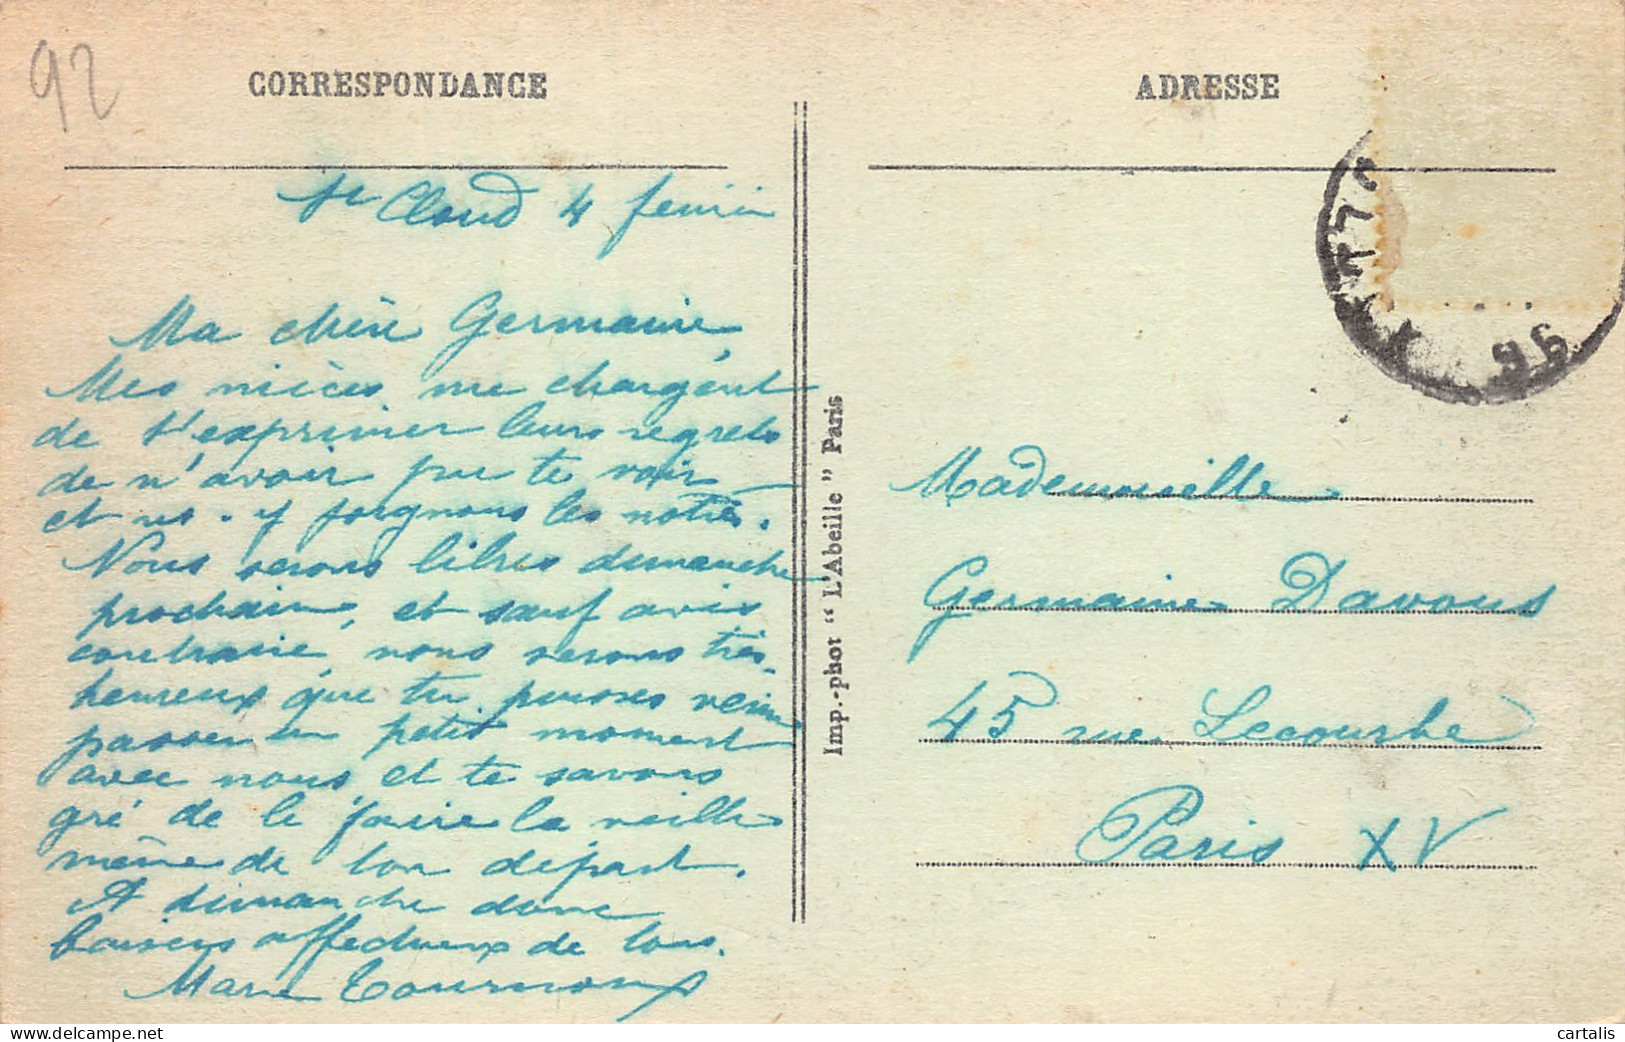 92
CORRESPONDANCE
St Cloud 4 février
Ma chère Germaine,
Mes nièces me chargent
de t'exprimer leurs regrets
de n'avoir pu te voir
et ns. y joignons les notres.
Nous serons libres dimanche
prochain, et sauf avis
contraire, nous serons très
heureux que tu puisses venir
passer un petit moment
avec nous et te savons
gré de le faire la veille
même de ton départ.
A dimanche donc
baisers affectueux de tous.
Marie Tournoux
Imp.-phot "L'Abeille" Paris
ADRESSE
Mademoiselle
Germaine Davous
45 rue Lecourbe
Paris XV
cartalis